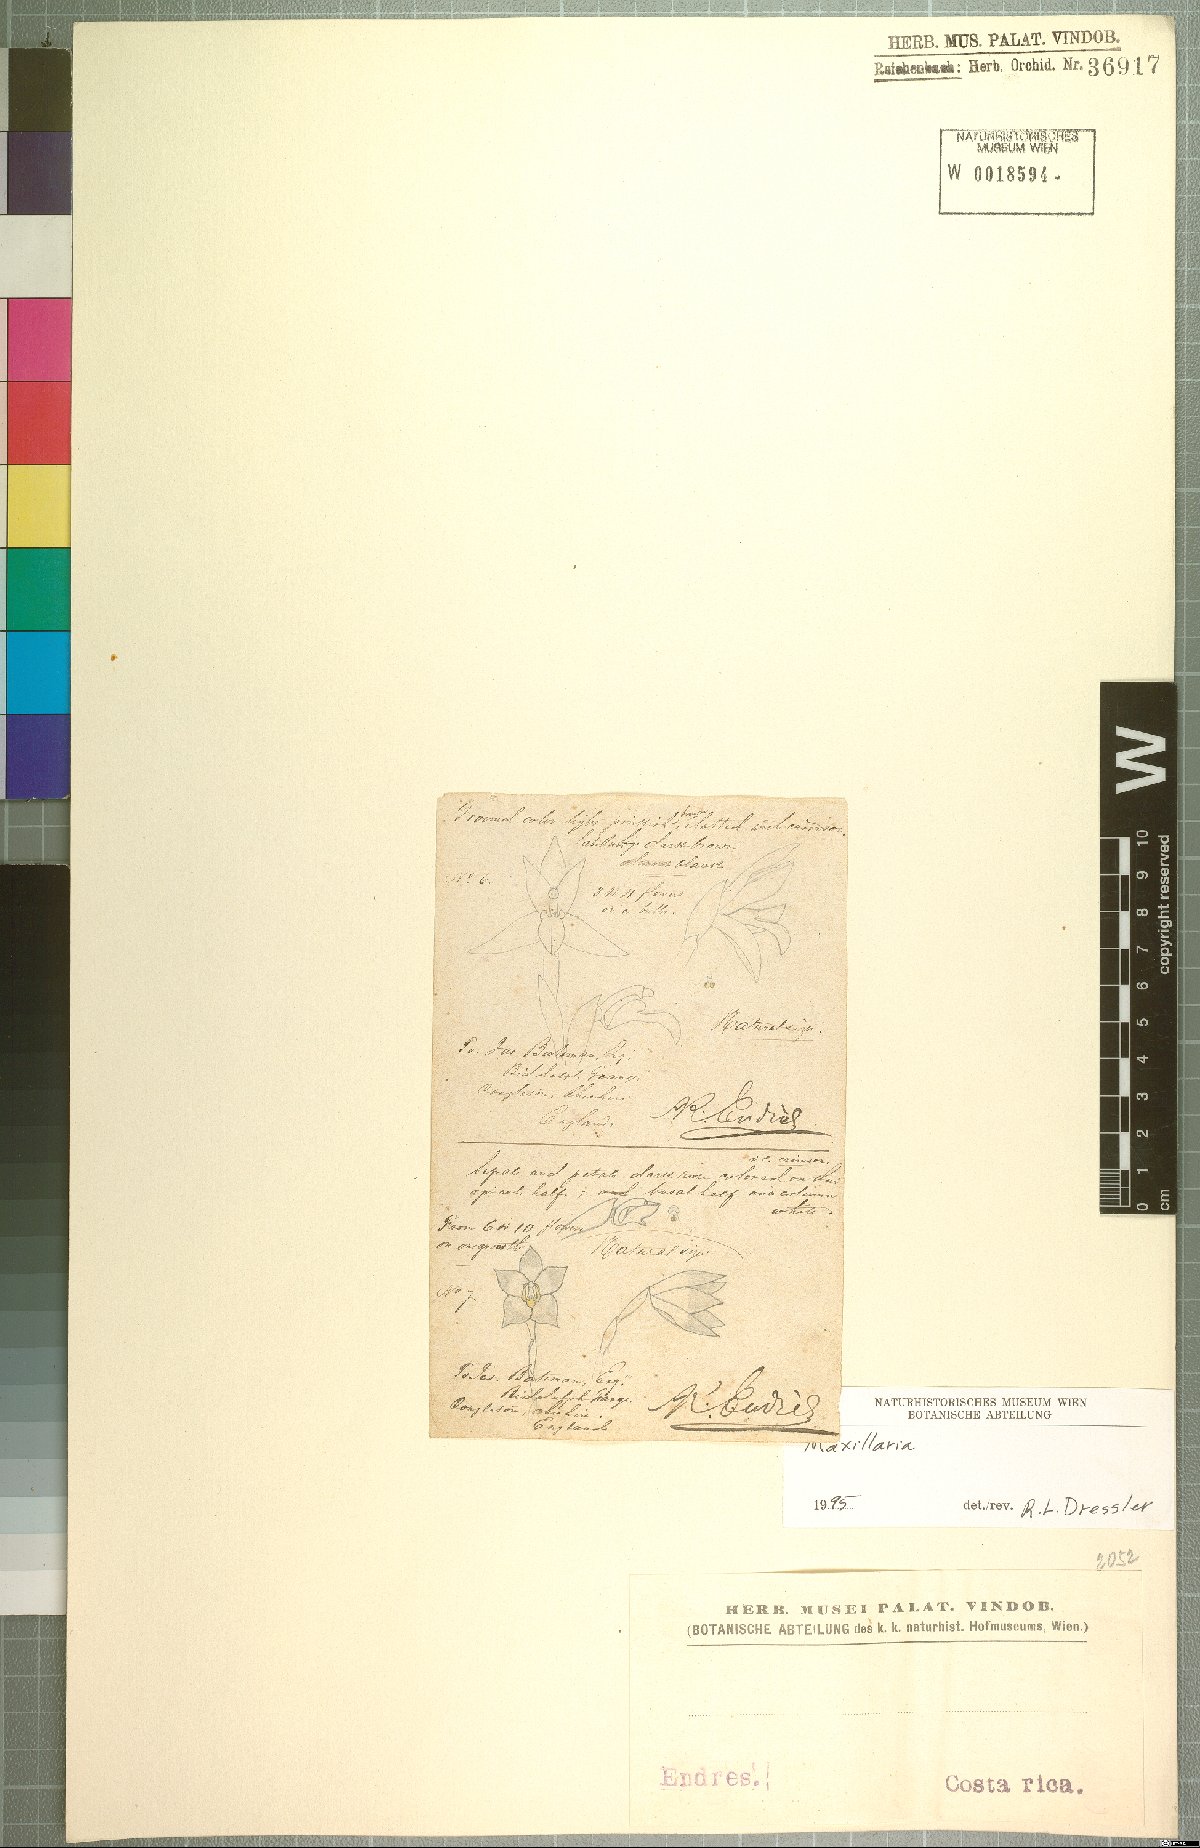 HERB. MUS. PALAT. VINDOB.
Reichenbach: Herb. Orchid. Nr. 36917
NATURHISTORISCHES
MUSEUM WIEN
W 0018594 -
W
0 1 2 3 4 5 6 7 8 9 10
cm
copyright reserved
Ground color light
dark brown
No 6.
3 to 4 flowers
on a bulb.
Natural size.
To Jas. Bateman, Esq.
Biddulph Grange
Congleton, Cheshire
England.
A.R. Endrés
i.e. crimson.
Sepals and petals dark rose colored on the
apical half; and basal half and column
white.
From 6 to 10 flowers
on one growth
Natural size
No 7.
To Jas. Bateman, Esq.
Biddulph Grange.
Congleton, Cheshire.
England.
A.R. Endrés
NATURHISTORISCHES MUSEUM WIEN
BOTANISCHE ABTEILUNG
Maxillaria
1995 det./rev. R. L. Dressler
2052
HERB. MUSEI PALAT. VINDOB.
(BOTANISCHE ABTEILUNG des k. k. naturhist. Hofmuseums, Wien.)
Endres.
Costa rica.